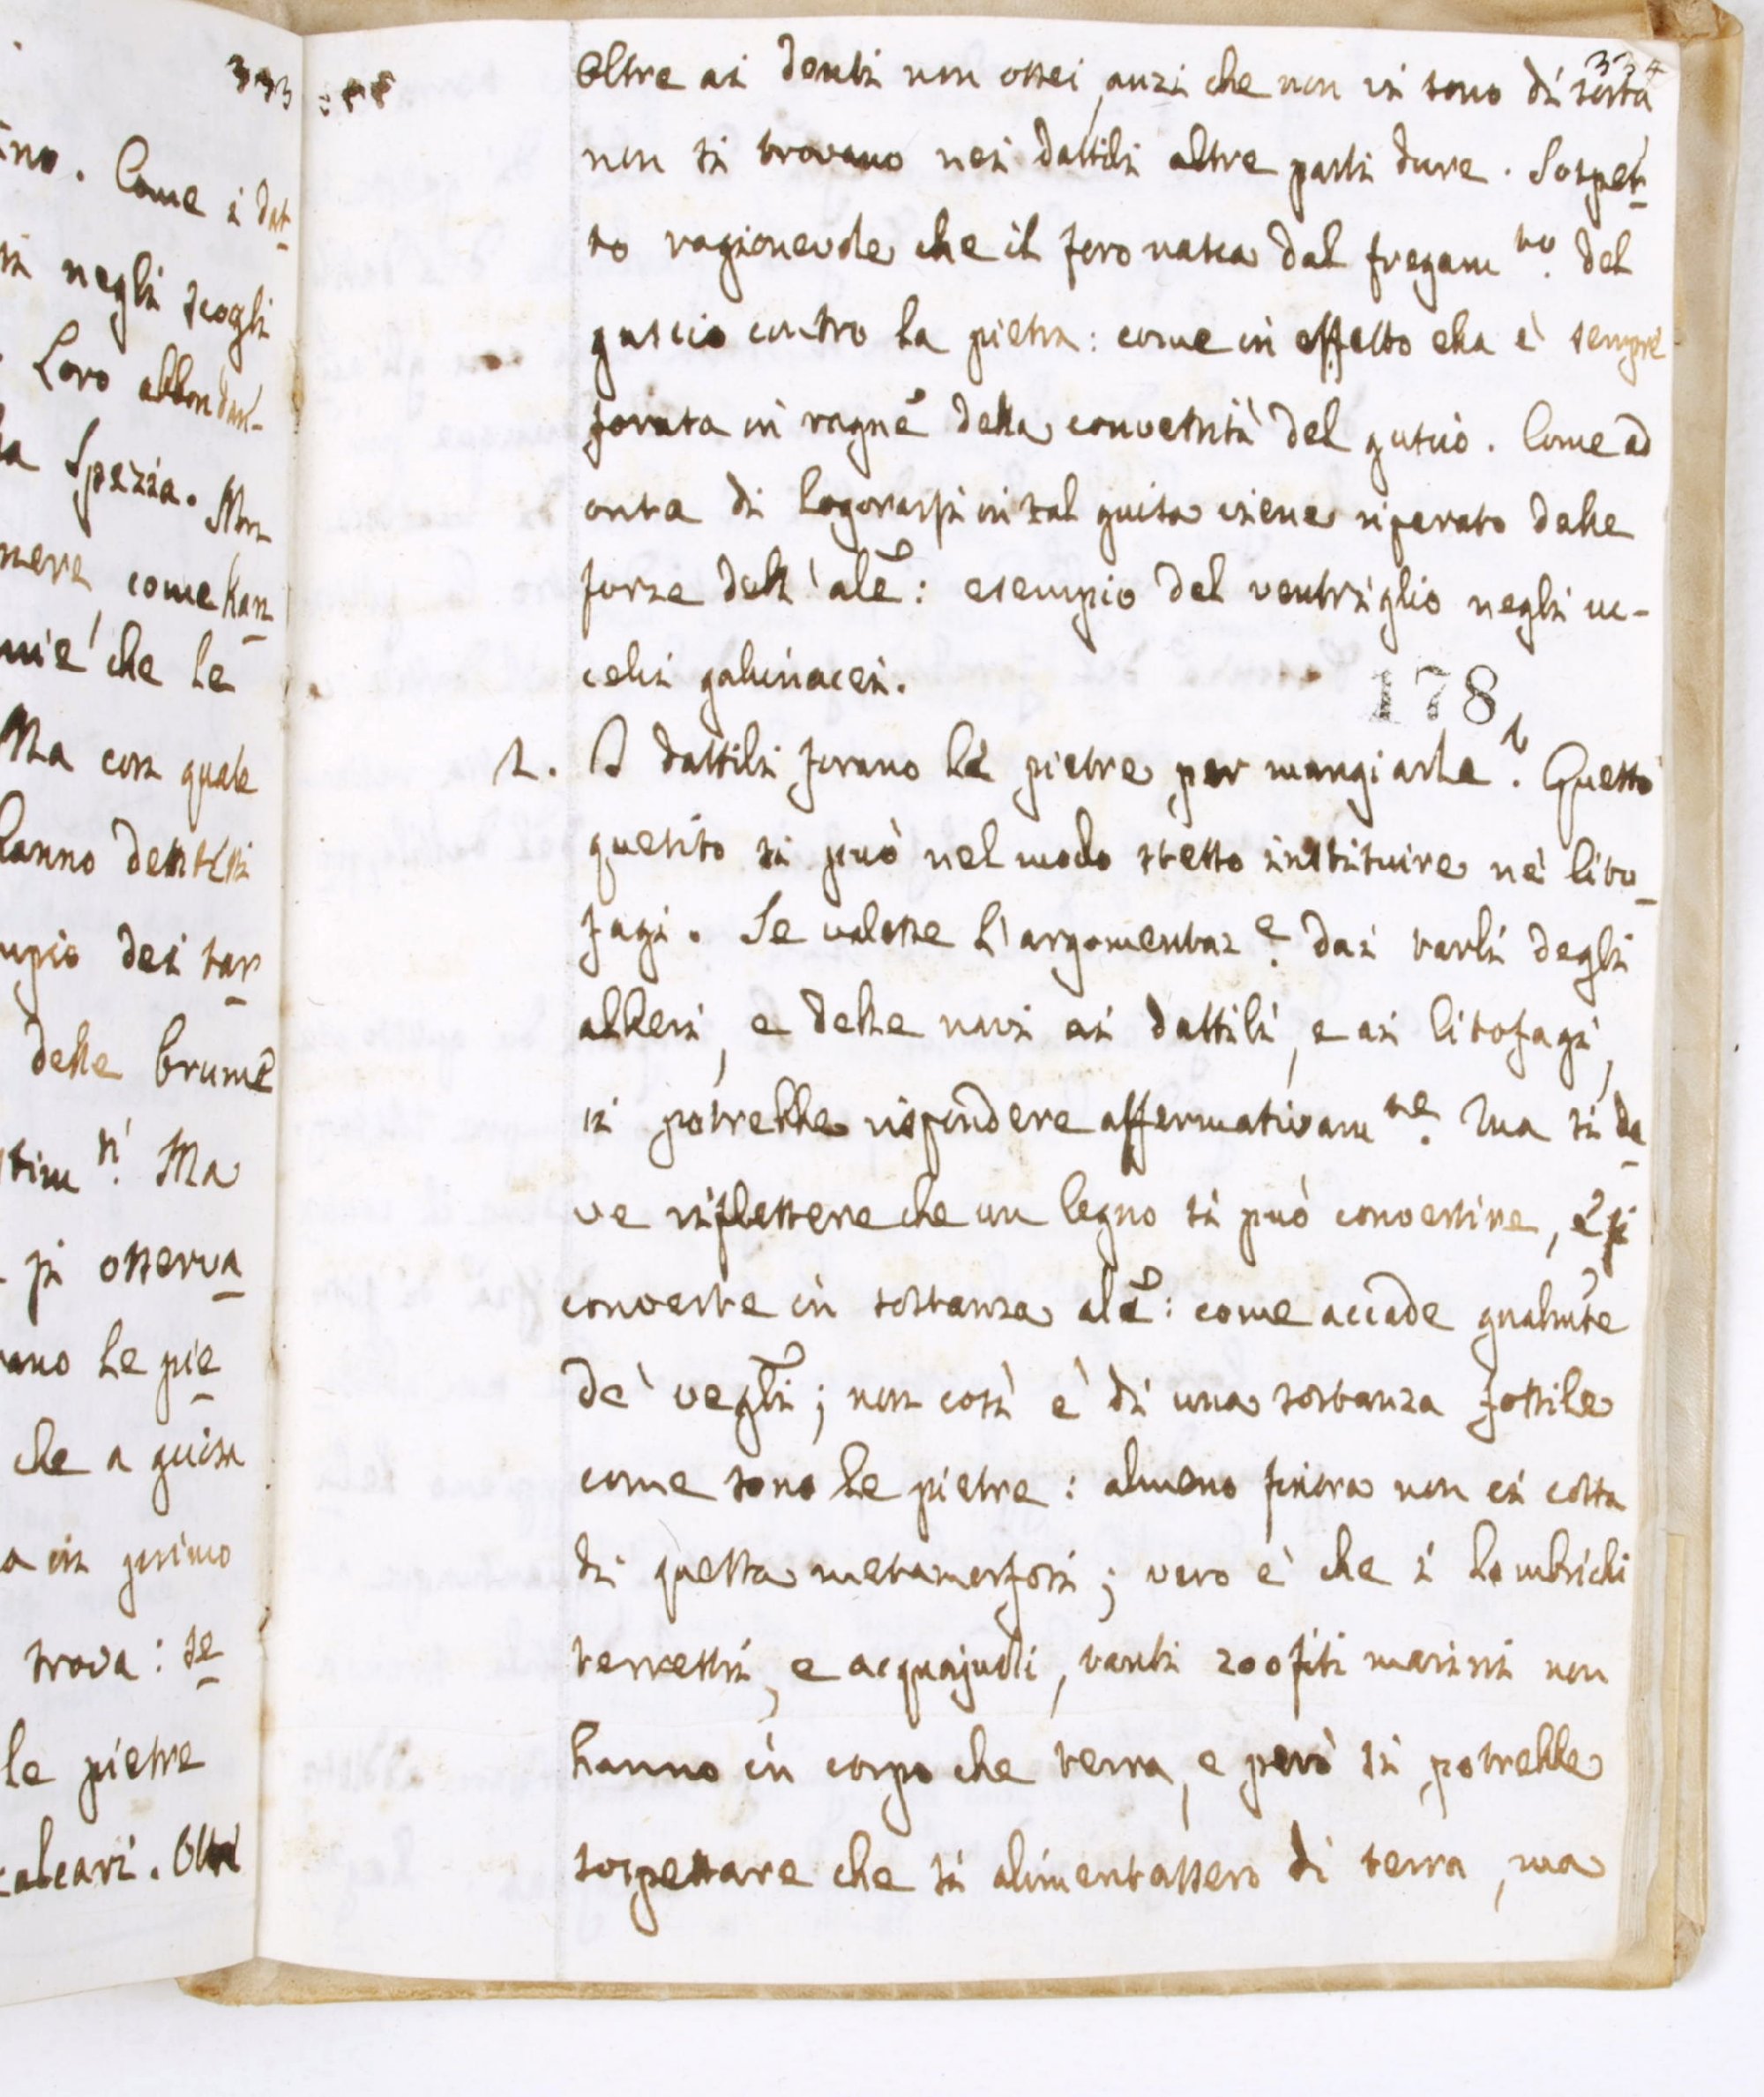 333
ino. Come i dat-
negli scogli
Loro abbondan-
la Spezia. Non
mere come han-
che le
Ma con quale
hanno dentisi
dei tar-
delle brume
stim.ti Ma
si osserva-
rano le pie-
che a guisa
a in primo
trova: se-
le pietre
calcari. Oltre
334
Oltre ai denti non ossei, anzi che non vi sono di sorta
non si trovano nei dattili altre parti dure. Sospet-
to ragionevole che il foro nasca dal fregam.to del
guscio contro la pietra: come in effetto ella è sempre
forata in ragne della convessità del guscio. Come ad
onta di logorarsi in tal guisa viene riperato dalle
forze dell'ale: esempio del ventriglio negli uc-
celli gallinacei.
178
2. I dattili forano le pietre per mangiarle? Questo
quesito si può nel modo stesso instituire ne' lito-
fagi. Se valesse l'argomentaz.e dai tarli degli
alberi, e delle navi ai dattili, e ai litofagi,
si potrebbe rispondere affermativam.te. Ma si de-
ve riflettere che un legno si può convertire, e si
converte in sostanza ale: come accade gnalmte
de' vegli; non così è di una sostanza fossile
come sono le pietre: almeno finora non ci costa
di questa metamorfosi; vero è che i lombrichi
terrestri, e acquajuoli, tanti zoofiti marini non
hanno in corpo che terra, e però si potrebbe
sospettare che si alimentassero di terra, ma